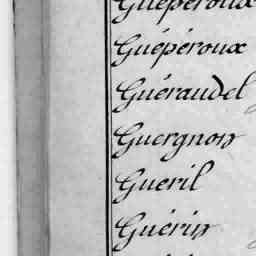 Guéperoux
Guépéroux
Guéraudel
Guergnon
Gueril
Guérin